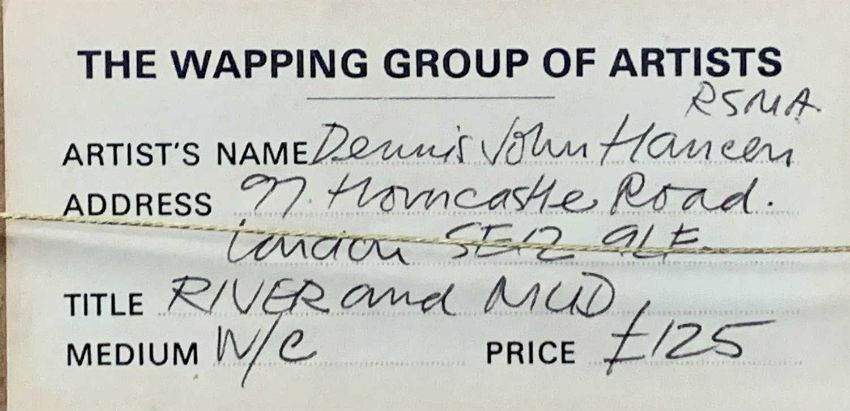 THE WAPPING GROUP OF ARTISTS
RSMA.
ARTIST'S NAME Dennis John Hanceri
ADDRESS 97. Horncastle Road.
London SE12 9LF.
TITLE RIVER and MUD
MEDIUM W/C PRICE £125